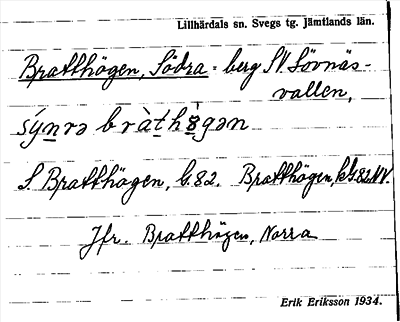 Lillhärdals sn. Svegs tg. Jämtlands län.
Bratthögen, Södra - berg SV Lövnäs-
vallen,
sýnrə bràthö̀gən
S. Bratthögen, G.82. Bratthögen,
Jfr. Bratthögen, Norra
Erik Eriksson 1934.